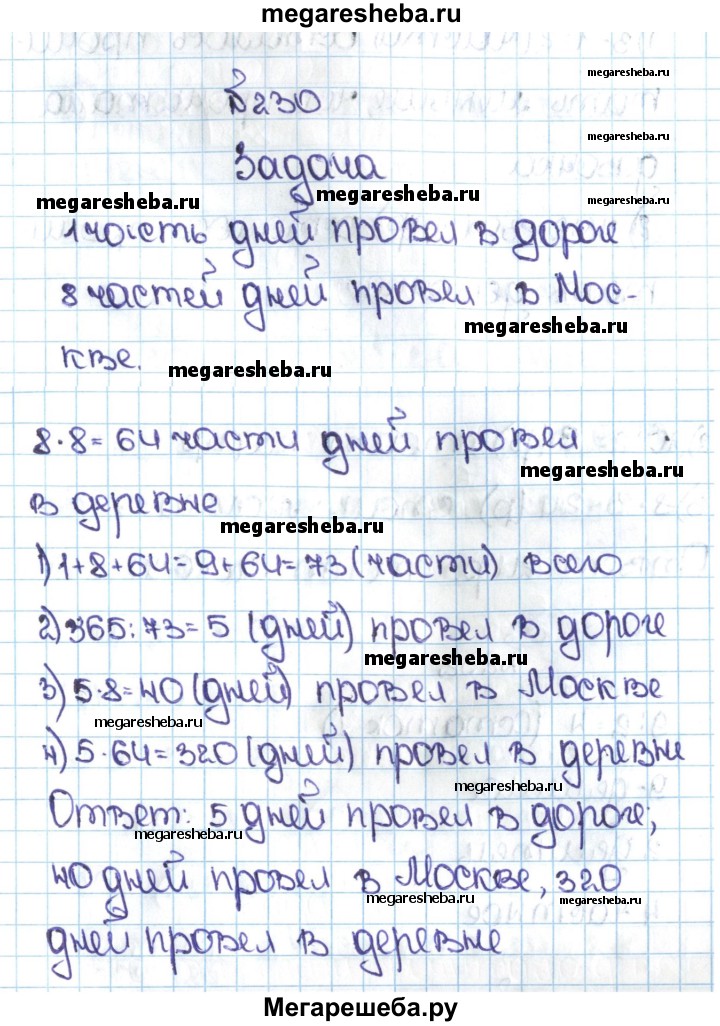 megaresheba.ru
megaresheba.ru
№230
megaresheba.ru
Задача
megaresheba.ru
megaresheba.ru
megaresheba.ru
1 часть дней провел в дороге
8 частей дней провел в Мос-
megaresheba.ru
кве.
megaresheba.ru
8·8=64 части дней провел
megaresheba.ru
в деревне
megaresheba.ru
1) 1+8+64=9+64=73 (части) всего
2) 365:73=5 (дней) провел в дороге
megaresheba.ru
3) 5·8=40 (дней) провел в Москве
megaresheba.ru
4) 5·64=320 (дней) провел в деревне
megaresheba.ru
Ответ: 5 дней провел в дороге;
megaresheba.ru
40 дней провел в Москве, 320
megaresheba.ru
megaresheba.ru
дней провел в деревне
Мегарешеба.ру